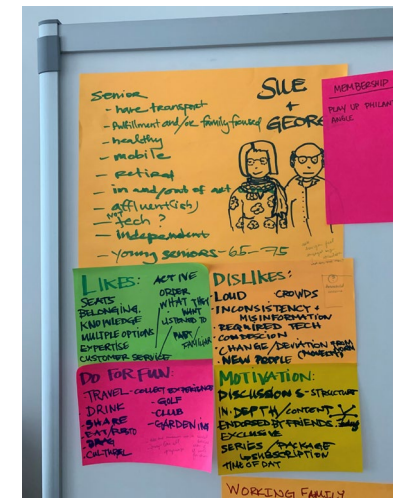 Senior
- have transport
- fulfillment and/or family focused
- healthy
- mobile
- retired
- in and/out of nest
- affluent (ish)
- not tech?
- independent
- young seniors - 65-75
SUE
+
GEOR
MEMBERSHIP
PLAY UP PHILAN
ANGLE
LIKES:
SEATS
BELONGING
KNOWLEDGE
MULTIPLE OPTIONS
EXPERTISE
CUSTOMER SERVICE
ACTIVE
ORDER
WHAT THEY
WANT
LISTENED TO
PAST/
FAMILIAR
DISLIKES:
- LOUD CROWDS
- INCONSISTENCY +
MISINFORMATION
- REQUIRED TECH
- CONDESCEN
- CHANGE/DEVIATION FROM
- NEW PEOPLE
DO FOR FUN:
- TRAVEL - COLLECT EXPERIENCE
DRINK
- SHARE
- BRAG
- CULTURAL
- GOLF
- CLUB
- GARDENING
MOTIVATION:
DISCUSSIONS - STRUCTURE
IN-DEPTH/CONTENT
ENDORSED BY FRIENDS
EXCLUSIVE
SERIES/PACKAGE
SUBSCRIPTION
TIME OF DAY
WORKING FAMILY